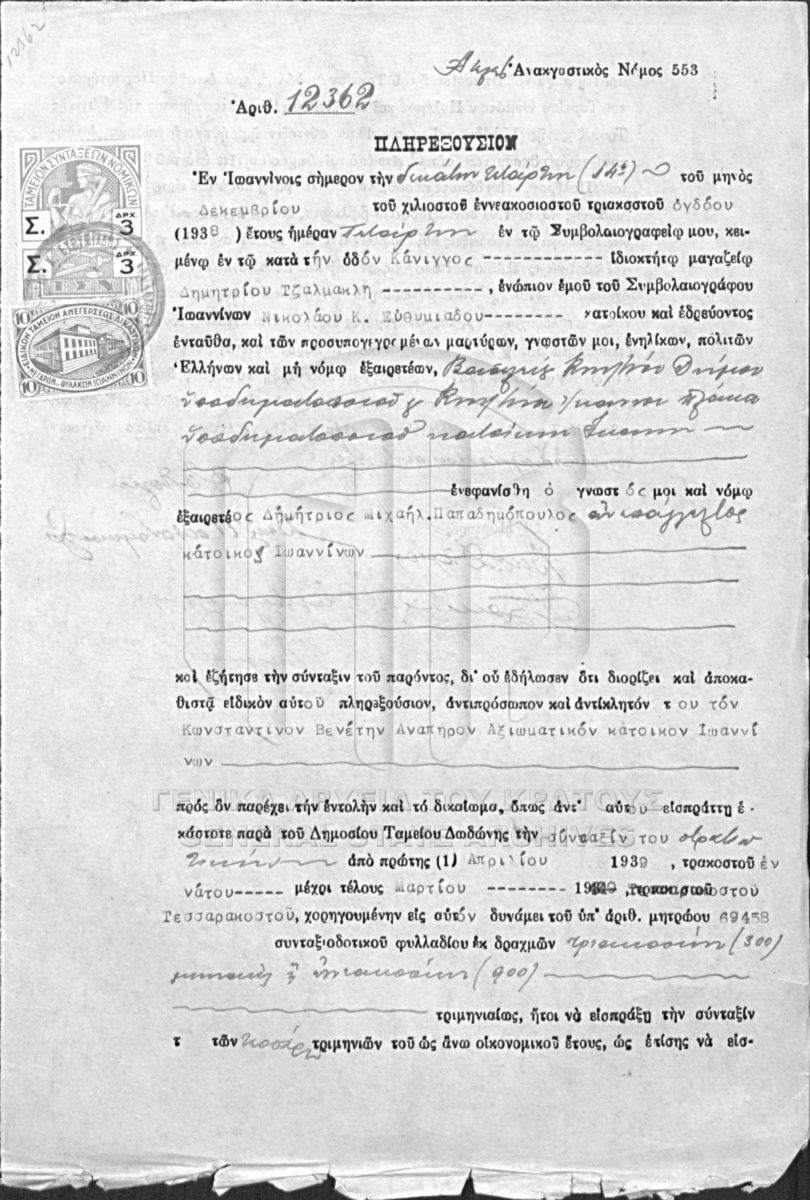 12362
Ἀναγκαστικὸς Νόμος 553
Ἀριθ. 12362
ΠΛΗΡΕΞΟΥΣΙΟΝ
ΤΑΜΕΙΟΝ ΣΥΝΤΑΞΕΩΝ ΝΟΜΙΚΩΝ
Σ. ΔΡΧ. 3
Σ. ΔΡΧ. 3
10 10
ΕΙΔΙΚΟΝ ΤΑΜΕΙΟΝ ΑΝΕΓΕΡΣΕΩΣ ΔΙΚΑΣΤΙΚΟΥ ΜΕΓΑΡΟΥ ΦΥΛΑΚΩΝ ΙΩΑΝΝΙΝΩΝ
10 10
Ἐν Ἰωαννίνοις σήμερον τὴν δεκάτην τετάρτην (14ην) τοῦ μηνὸς
Δεκεμβρίου τοῦ χιλιοστοῦ ἐννεακοσιοστοῦ τριακοστοῦ ὀγδόου
(1938 ) ἔτους ἡμέραν Τετάρτην ἐν τῷ Συμβολαιογραφείῳ μου, κει-
μένῳ ἐν τῷ κατὰ τὴν ὁδὸν Κάνιγγος ------------ ἰδιοκτήτῳ μαγαζείῳ
Δημητρίου Τζαλμακλῆ ----------, ἐνώπιον ἐμοῦ τοῦ Συμβολαιογράφου
Ἰωαννίνων Νικολάου Κ. Εὐθυμιάδου-------- κατοίκου καὶ ἑδρεύοντος
ἐνταῦθα, καὶ τῶν προσυπογεγραμμένων μαρτύρων, γνωστῶν μοι, ἐνηλίκων, πολιτῶν
Ἑλλήνων καὶ μὴ νόμῳ ἐξαιρετέων,
ὑποδηματοποιοῦ
ὑποδηματοποιοῦ κατοίκων
ἐνεφανίσθη ὁ γνωστός μοι καὶ νόμῳ
ἐξαιρετέος Δημήτριος Μιχαήλ. Παπαδημόπουλος
κάτοικος Ἰωαννίνων
καὶ ἐζήτησε τὴν σύνταξιν τοῦ παρόντος, δι' οὗ ἐδήλωσεν ὅτι διορίζει καὶ ἀποκα-
θιστᾷ εἰδικὸν αὐτοῦ πληρεξούσιον, ἀντιπρόσωπον καὶ ἀντίκλητόν του τόν
Κωνσταντινον Βενέτην Αναπηρον Αξιωματικόν κάτοικον Ιωαννί
νων
ΓΕΝΙΚΑ ΑΡΧΕΙΑ ΤΟΥ ΚΡΑΤΟΥΣ
πρὸς ὃν παρέχει τὴν ἐντολὴν καὶ τὸ δικαίωμα, ὅπως ἀντ' αὐτου εἰσπράττῃ ἑ-
κάστοτε παρὰ τοῦ Δημοσίου Ταμείου Δωδώνης τὴν σύνταξίν του
GENERAL STATE ARCHIVES
ἀπὸ πρώτης (1) Απριλίου 1939 , τρακοστοῦ ἐν
νάτου----- μέχρι τέλους Μαρτίου --------
Τεσσαρακοστοῦ, χορηγουμένην εἰς αὐτόν δυνάμει τοῦ ὑπ' ἀριθ. μητρώου 69458
συνταξιοδοτικοῦ φυλλαδίου ἐκ δραχμῶν τριακοσίων (300)
(900)
τριμηνιαίως, ἤτοι νὰ εἰσπράξῃ τὴν σύνταξιν
τ τῶν τριμηνιῶν τοῦ ὡς ἄνω οἰκονομικοῦ ἔτους, ὡς ἐπίσης νὰ εἰσ-